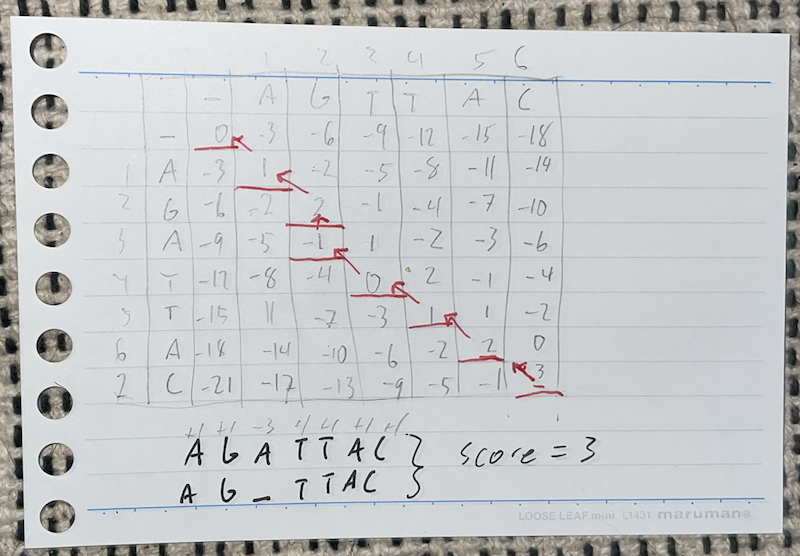 1 2 3 4 5 6
- A G T T A C
- 0 -3 -6 -9 -12 -15 -18
1 A -3 1 -2 -5 -8 -11 -14
2 G -6 -2 2 -1 -4 -7 -10
3 A -9 -5 -1 1 -2 -3 -6
4 T -12 -8 -4 0 2 -1 -4
5 T -15 11 -7 -3 1 1 -2
6 A -18 -14 -10 -6 -2 2 0
7 C -21 -17 -13 -9 -5 -1 3
+1 +1 -3 +1 +1 +1 +1
A G A T T A C } score = 3
A G _ T T A C }
LOOSE LEAF mini L1431 maruman®